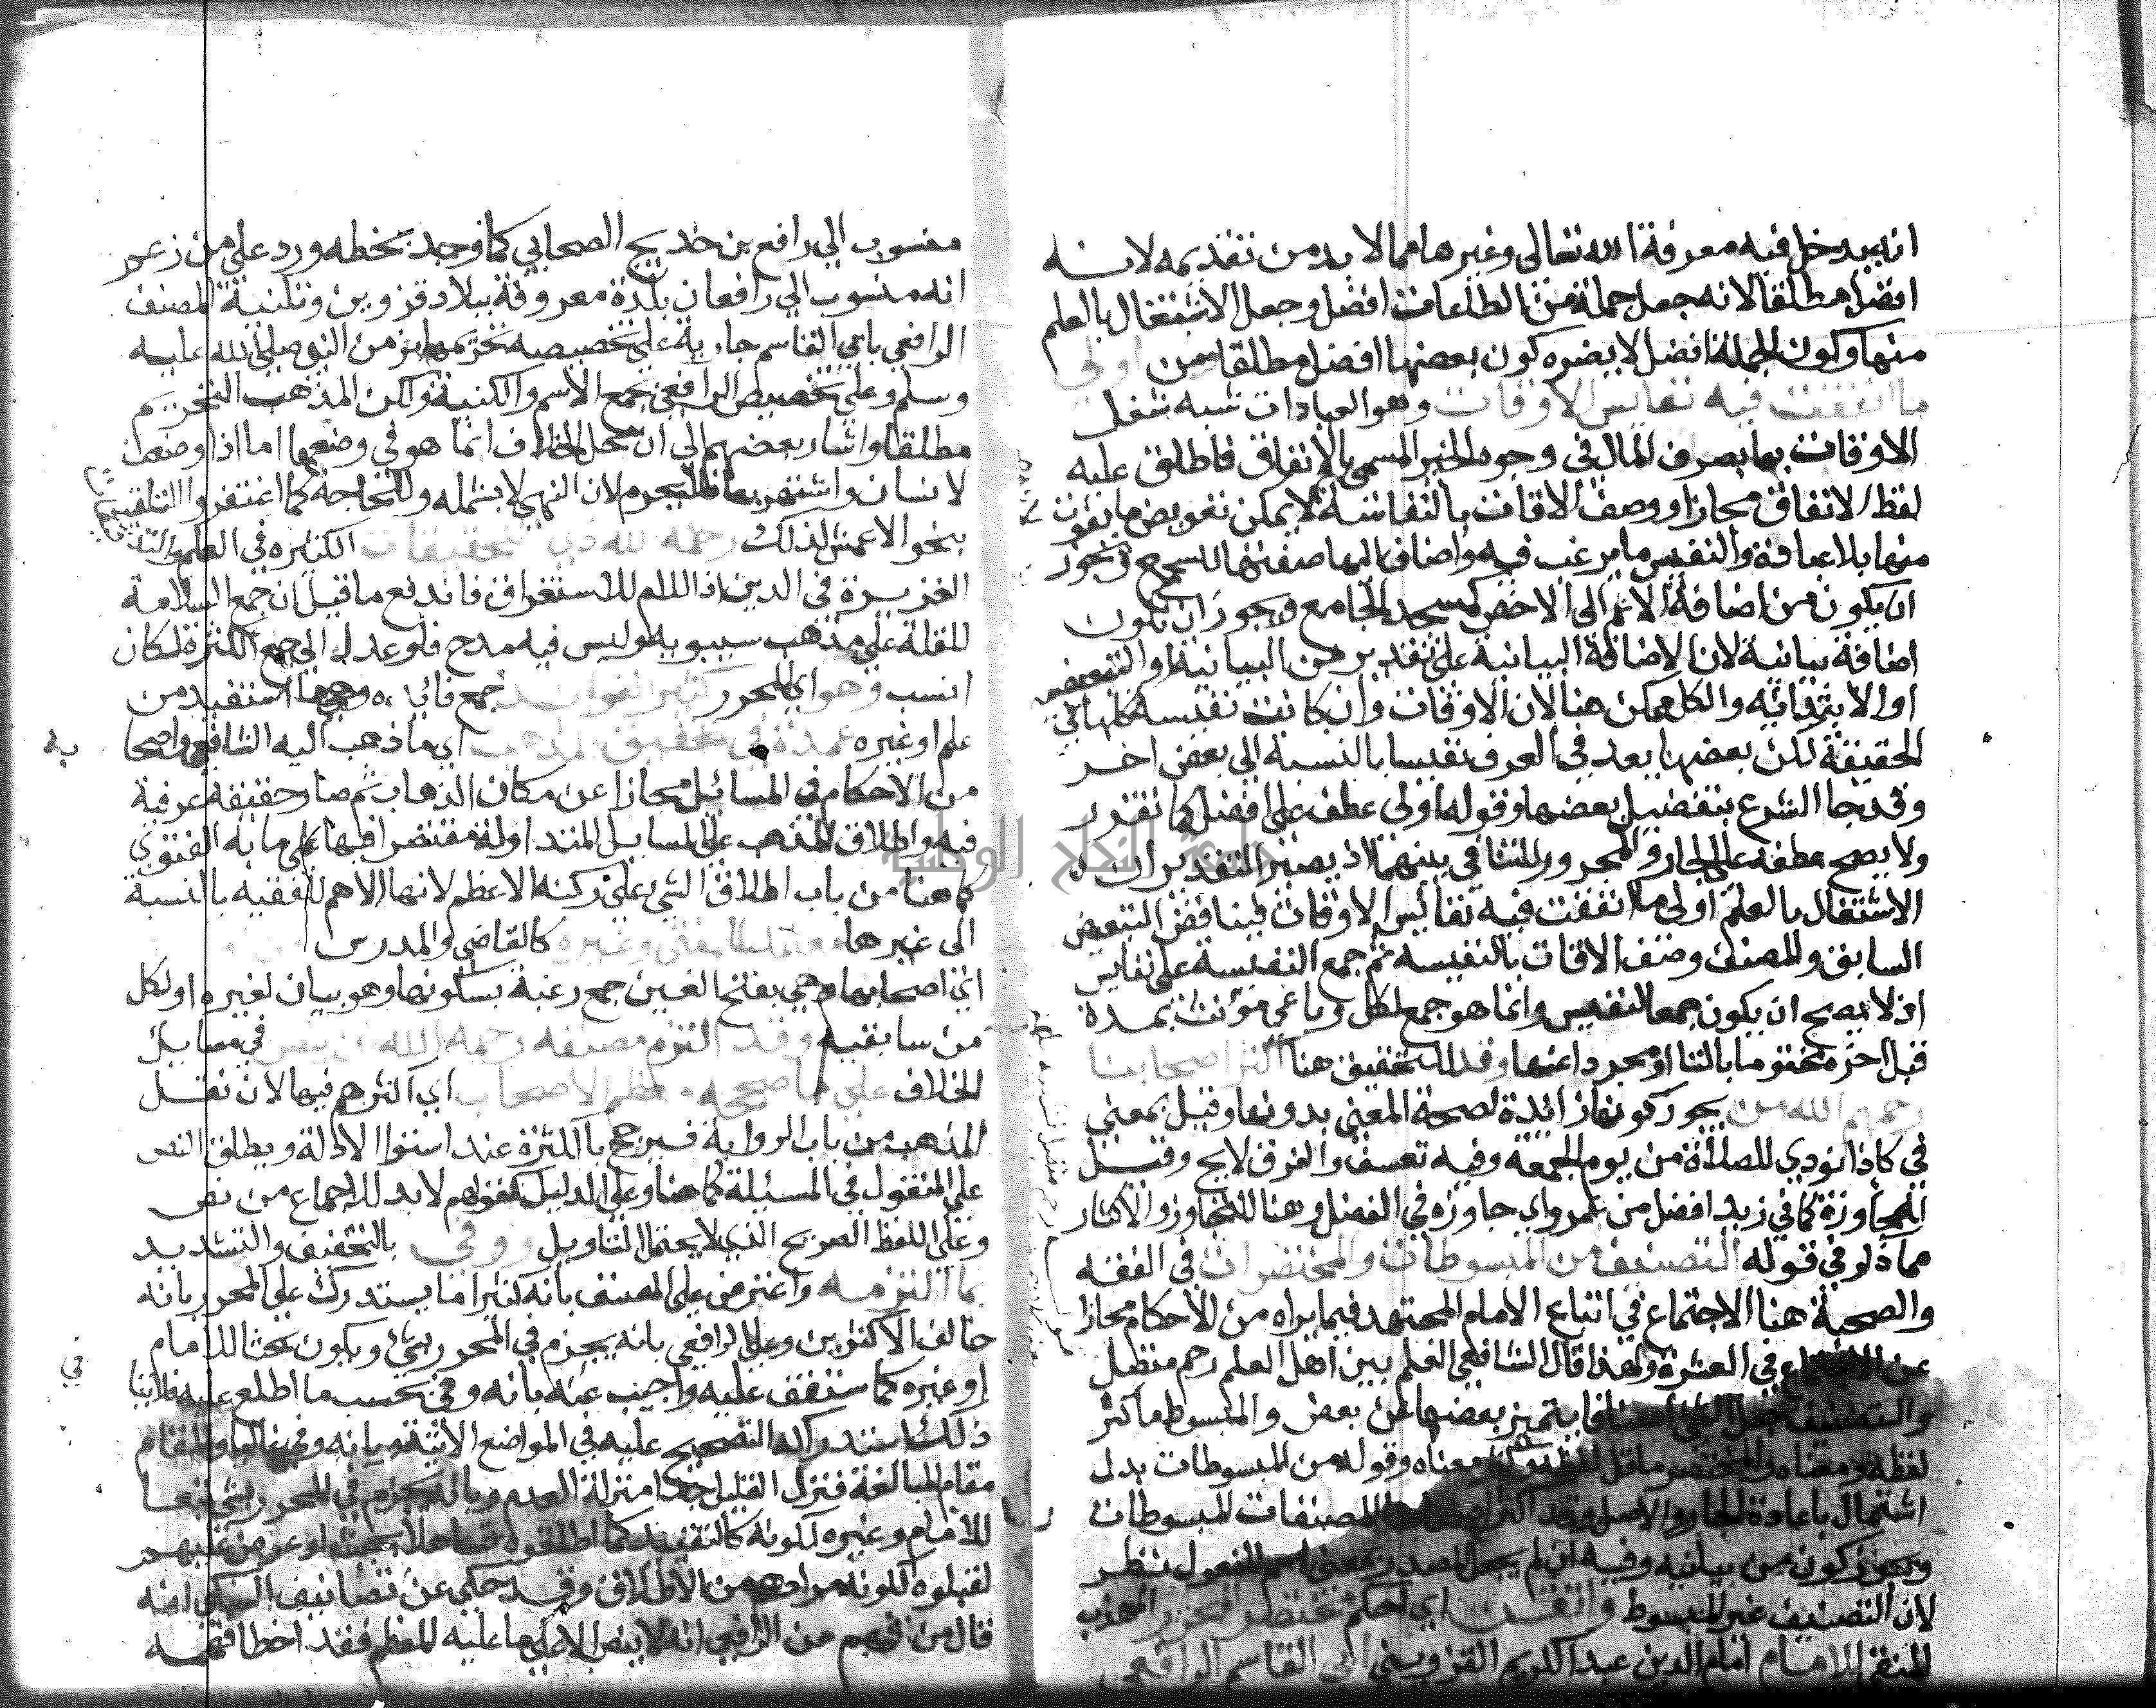 انه يدخل فيه معرفة الله تعالى وغيرها مما لا بد من تقديمه لانه
افضل مطلقا لانه جعل جملة من الطاعات افضل وجعل الاشتغال بالعلم
منها وكون الجملة افضل لا يضره كون بعضها افضل مطلقا ومن اولى
ما انفقت فيه نفايس الاوقات وهو العبادات شبه شغل
الاوقات بها بصرف المال في وجوه الخير المسمى بالانفاق فاطلق عليه
لفظ الانفاق مجازا ووصف الاوقات بالنفاسة لانه لا يمكن تعويض ما يفوت
منها بلا عبادة والنفيس ما يرغب فيه واضاف اليها صفتها للسجع ويجوز
ان يكون من اضافة الاعم الى الاخص كمسجد الجامع ويجوز ان تكون
اضافة بيانية لان الاضافة البيانية على تقدير من البيانية او التبعيضيه
او الابتدائيه والكل ممكن هنا لان الاوقات وان كانت نفيسة كلها في
الحقيقة لكن بعضها يعد في العرف نفيسا بالنسبة الى بعض اخر
وقد جا الشرع بتفضيل بعضها وقوله اولى عطف على افضل كما تقرر
ولا يصح عطفه على الجار والمجرور للتنافي بينهما اذ يصير التقدير ان
الاشتغال بالعلم اولى ما انفقت فيه نفائس الاوقات فينافض التبعيض
السابق وللمصنف وصف الاقات بالنفيسه ثم جمع النفيسة على نفايس
اذ لا يصح ان يكون جمعا لنفيس وانما هو جمع لكل رباعي مؤنث بمدة
قبل اخره مختوما بالتا او مجردا عنها وقد للتحقيق هنا اكثر اصحابنا
رحمهم الله من يجوز كونها زائدة لصحة المعنى بدونها وقيل بمعنى
في كاذا نودي للصلاة من يوم الجمعة وفيه تعسف والفرق لايح وقيل
للمجاوزة كما في زيد افضل من عمرو اي جاوزه في الفضل وهنا للتجاوز والاكثار
مما ذكر في قوله التصنيف من المبسوطات والمختصرات في الفقه
والصحبة هنا الاجتماع في اتباع الامام المجتهد فيما يراه من الاحكام مجازا
عن الاجتماع في العشرة ولهذا قال الشافعي العلم بين اهل العلم رحم متصل
والتصنيف جعل الشئ اصنافا يتميز بعضها عن بعض والمبسوط ما كثر
لفظه ومعناه والمختصر ما قل لفظه وكثر معناه وقوله من المبسوطات بدل
اشتمال باعادة الجار والاصل وقد اكثر اصحابنا المصنفات المبسوطات
ويجوز كون من بيانيه وفيه ان لم يجعل المصدر بمعنى اسم المفعول نظر
لان التصنيف غير المبسوط واتقن اي احكم مختصر المحرر المهذب
المنقح للامام امام الدين عبد الكريم القزويني ابي القاسم الرافعي
منسوب الي رافع بن خديج الصحابي كما وجد بخطه ورد على من زعم
انه منسوب الي رافعان بلدة معروفة ببلاد قزوين وتكنية المصنف
الرافعي بابي القاسم جارية على تخصيصه تحريمها بزمن النبي صلى الله عليه
وسلم وعلى تخصيص الرافعي بجمع الاسم والكنية ولكن المذهب التحريم
مطلقا واشار بعضهم الى ان محل الخلاف انما هو في وضعها اما اذا وضعت
لانسان واشتهر بها فلا يحرم لان النهي لا يشمله وللحاجة كما اغتفروا التلقيب
بنحو الاعمش لذلك رحمه الله ذي التحقيقات الكثيرة في العلم
الغزيرة في الدين اذ اللام للاستغراق فاندفع ما قيل ان جمع السلامة
للقلة على مذهب سيبويه وليس فيه مدح فلو عدل الى جمع الكثرة لكان
انسب وهو اي المحرر كثير الفوائد جمع فائدة وهي ما استفيد من
علم او غيره عمدة في تحقيق المذهب اي ما ذهب اليه الشافعي واصحا
به
من الاحكام في المسائل مجازا عن مكان الذهاب ثم صار حقيقة عرفية
فيه واطلاق المذهب على المسايل المتداولة مقتصرا فيها على ما به الفتوي
كما هنا من باب اطلاق الشي على ركنه الاعظم لانها الاهم للفقيه بالنسبة
الى غيرها معتمد للمفتي وغيره كالقاضي والمدرس
اي اصحابها وهي بفتح الغين جمع رغبة بسكونها وهو بيان لغيره او لكل
من سابقيه وقد التزم مصنفه رحمه الله ان ينص في مسايل
الخلاف على ما صححه معظم الاصحاب اي اكثرهم فيها لان نقل
المذهب من باب الرواية فيرجح بالكثرة عند استوا الادلة ويطلق النص
على المنقول في المسئلة كما هنا وعلى الدليل كقولهم لا بد للاجماع من نص
وعلى اللفظ الصريح الذي لا يحتمل التاويل ووفى بالتخفيف والتشديد
بما التزمه واعترض على المصنف بانه كثيرا ما يستدرك على المحرر بانه
خالف الاكثرين وعلى الرافعي بانه يجزم في المحرر بشئ ويكون بحثا للامام
او غيره كما ستقف عليه واجيب عنه بانه وفى بحسب ما اطلع عليه فلا ينا
في
ذلك استدراكه التصحيح عليه في المواضع الاتية وبانه وفى غالبا والمقام
مقام المبالغة فنزل القليل جدا منزلة العدم وبانه يجزم في المحرر بشئ تبعا
للامام وغيره لكونه كالتقييد لما اطلقوه
لقبلوه لكونه مرادهم من الاطلاق وقد حكي عن تصانيف السبكي انه
قال من فهم من الرافعي انه لا ينص الا على ما عليه المعظم فقد اخطا فهمه